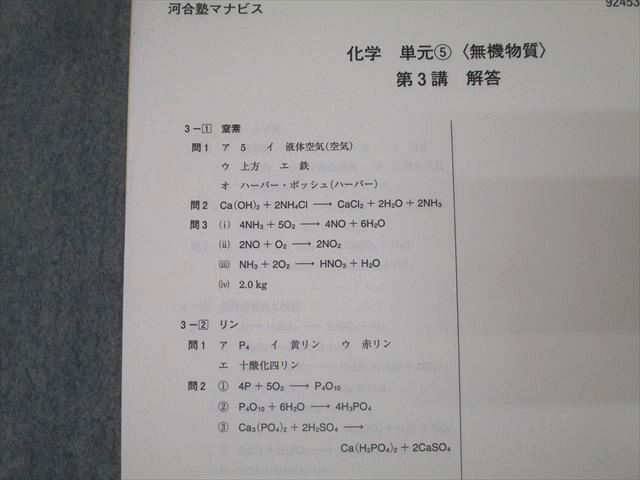 河合塾マナビス
92453
化学 単元⑤〈無機物質〉
第3講 解答
3－1 窒素
問1 ア 5 イ 液体空気(空気)
ウ 上方 エ 鉄
オ ハーバー・ボッシュ(ハーバー)
問2 Ca(OH)₂ + 2NH₄Cl ⟶ CaCl₂ + 2H₂O + 2NH₃
問3 (i) 4NH₃ + 5O₂ ⟶ 4NO + 6H₂O
(ii) 2NO + O₂ ⟶ 2NO₂
(iii) NH₃ + 2O₂ ⟶ HNO₃ + H₂O
(iv) 2.0 kg
3－2 リン
問1 ア P₄ イ 黄リン ウ 赤リン
エ 十酸化四リン
問2 ① 4P + 5O₂ ⟶ P₄O₁₀
② P₄O₁₀ + 6H₂O ⟶ 4H₃PO₄
③ Ca₃(PO₄)₂ + 2H₂SO₄ ⟶
Ca(H₂PO₄)₂ + 2CaSO₄